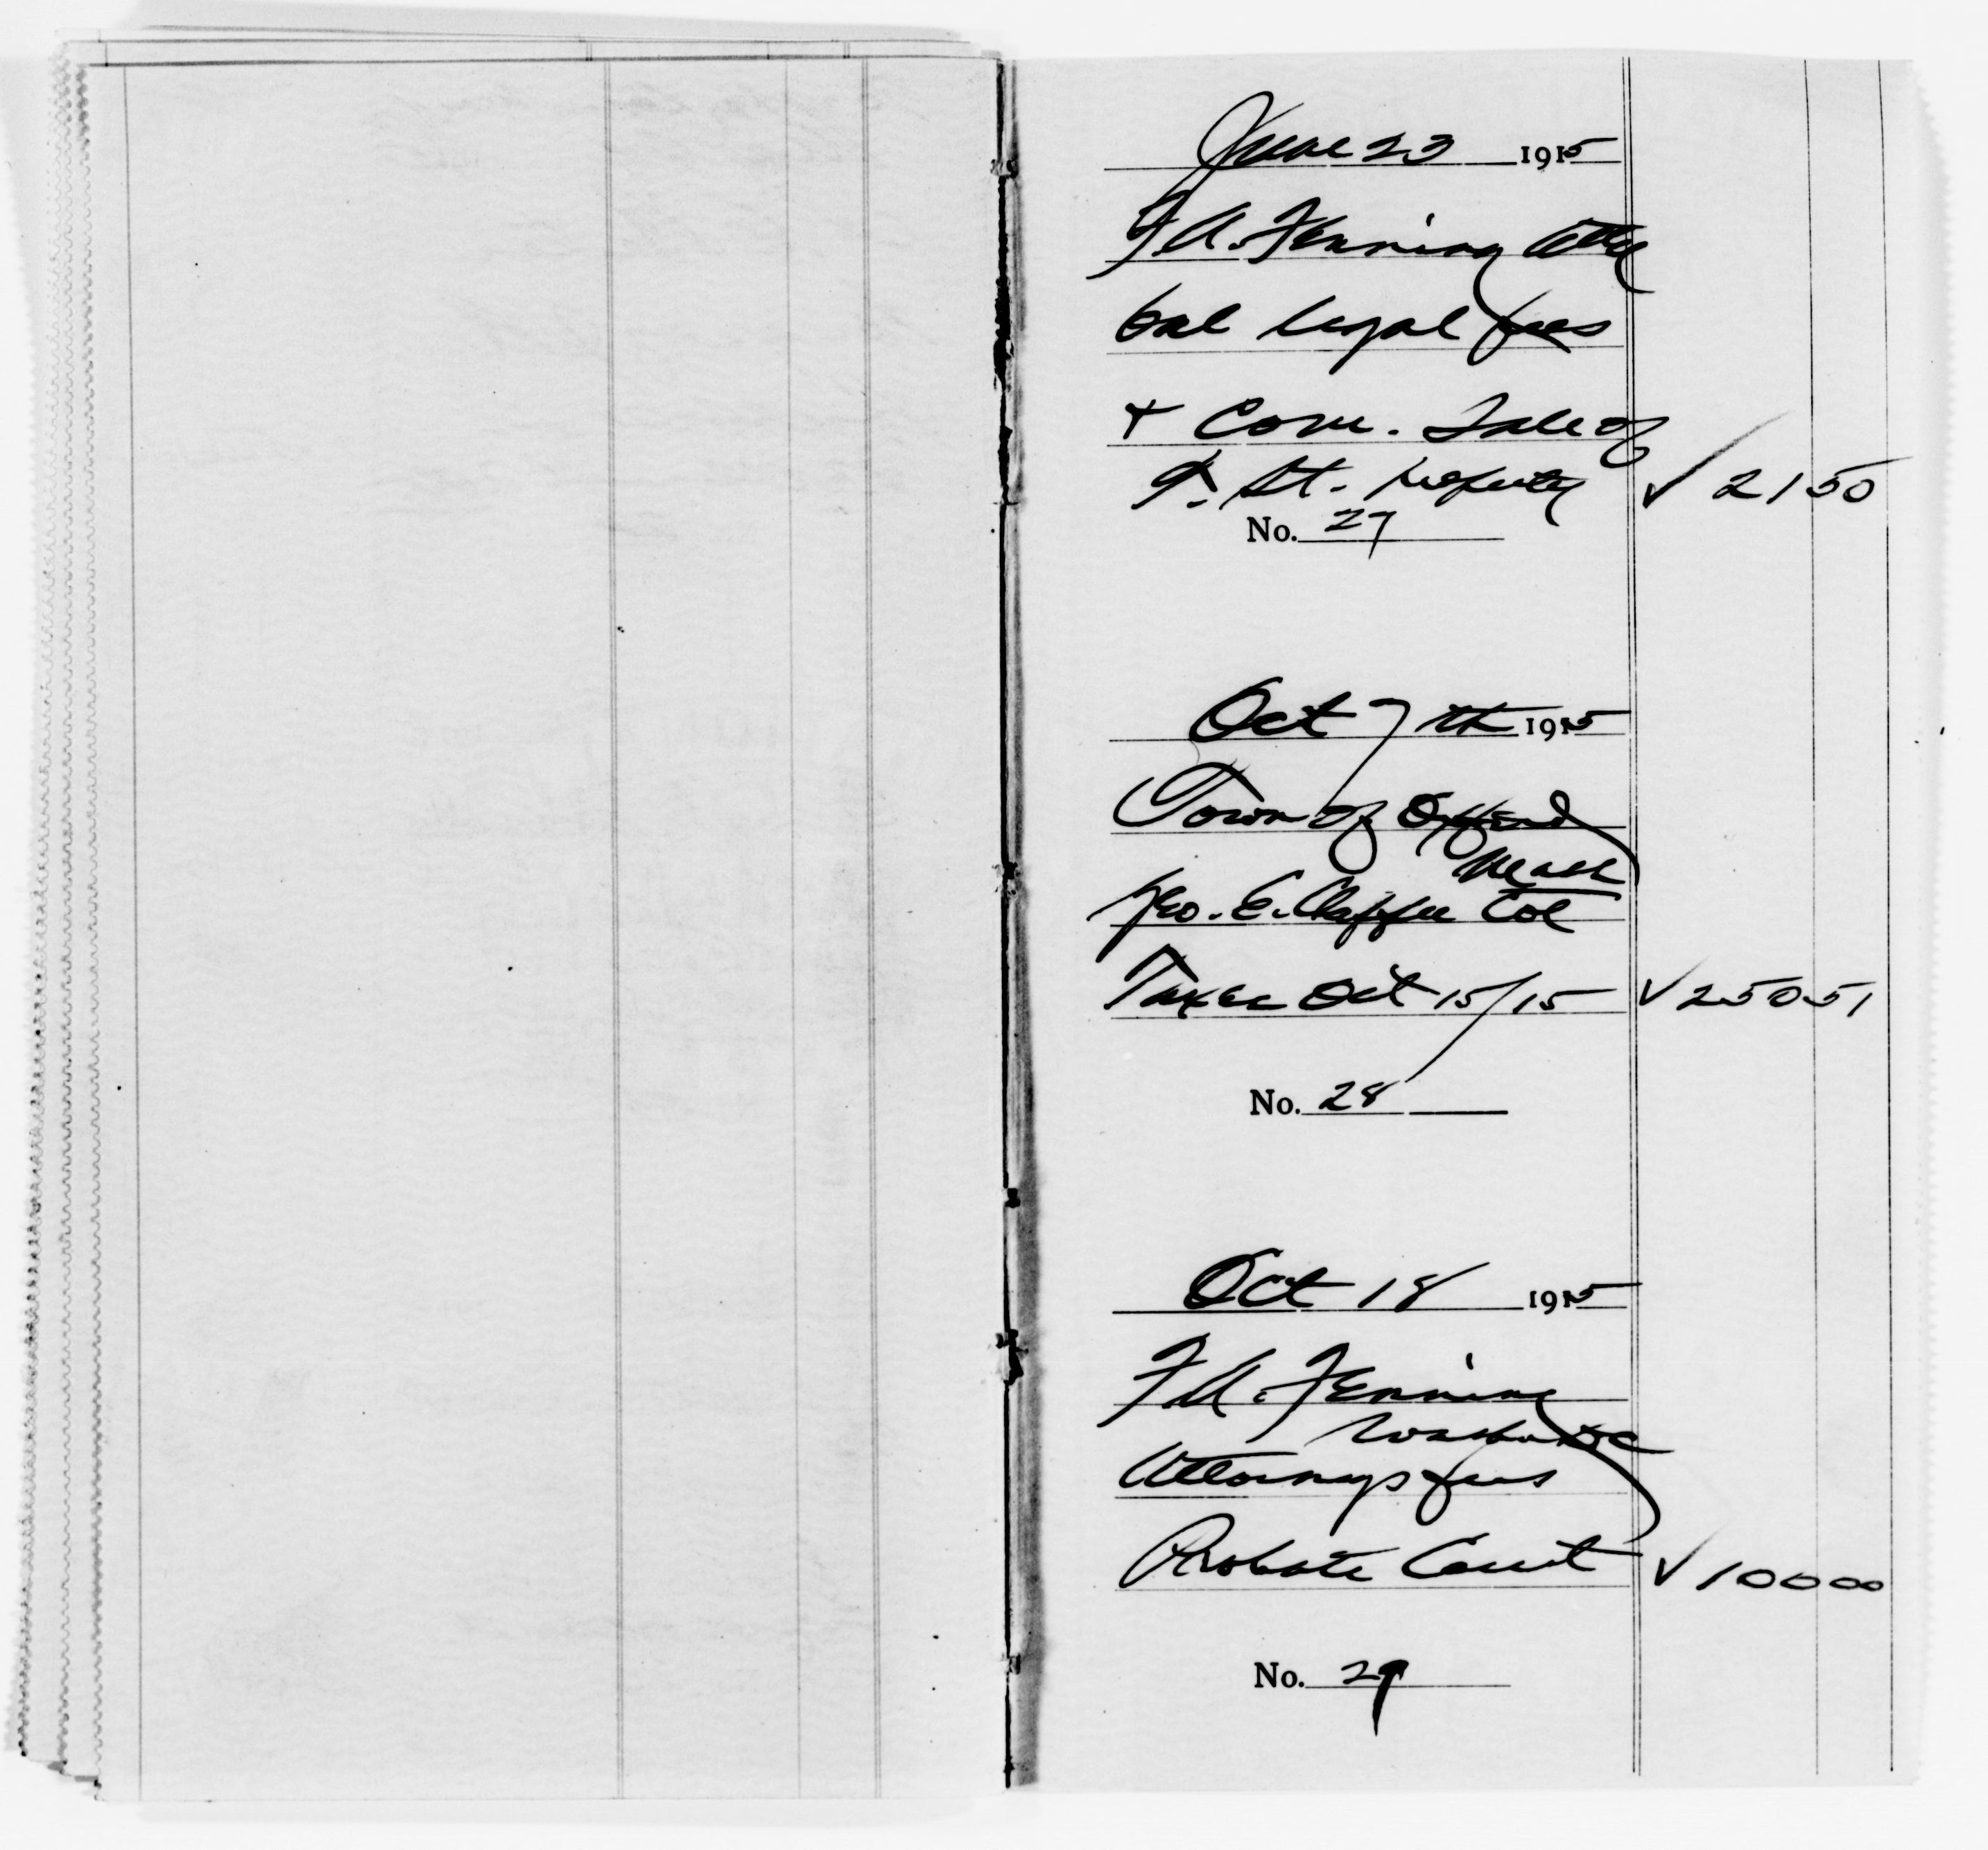 June 23 1915
F. A. Fenning Atty
bal legal fees
+ Com. Sale of
P. St. property ✓ 21 50
No. 27
Oct 7 th 1915
Town of Oxford
Mass
Geo. E. Chaffee Col
Taxes Oct 15/15 ✓ 250 51
No. 28
Oct 18 1915
F. A. Fenning
Wash DC
Attorneys fees
Probate Court ✓ 100 00
No. 29